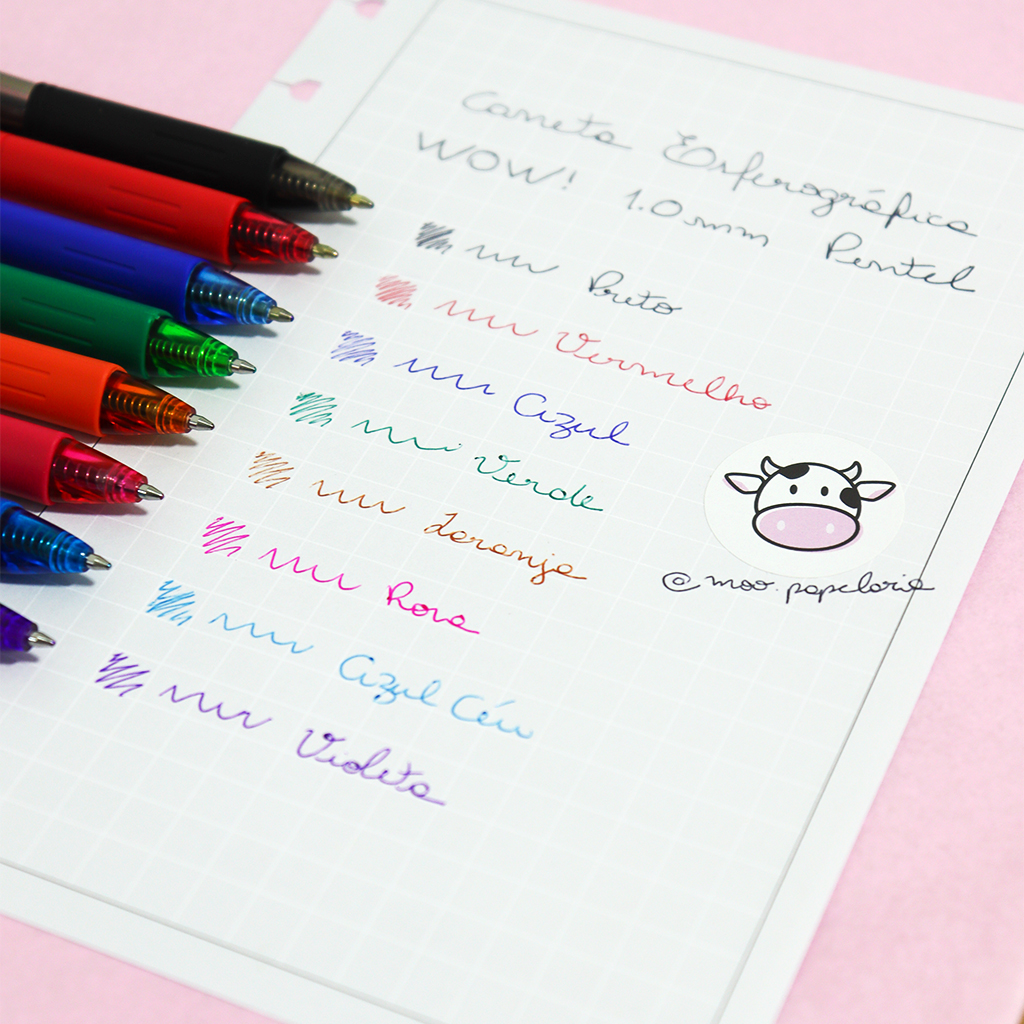 Caneta Esferográfica
WOW! 1.0mm Pentel
Preto
Vermelho
Azul
Verde
Laranja
Rosa
Azul Céu
Violeta
@moo.papelaria